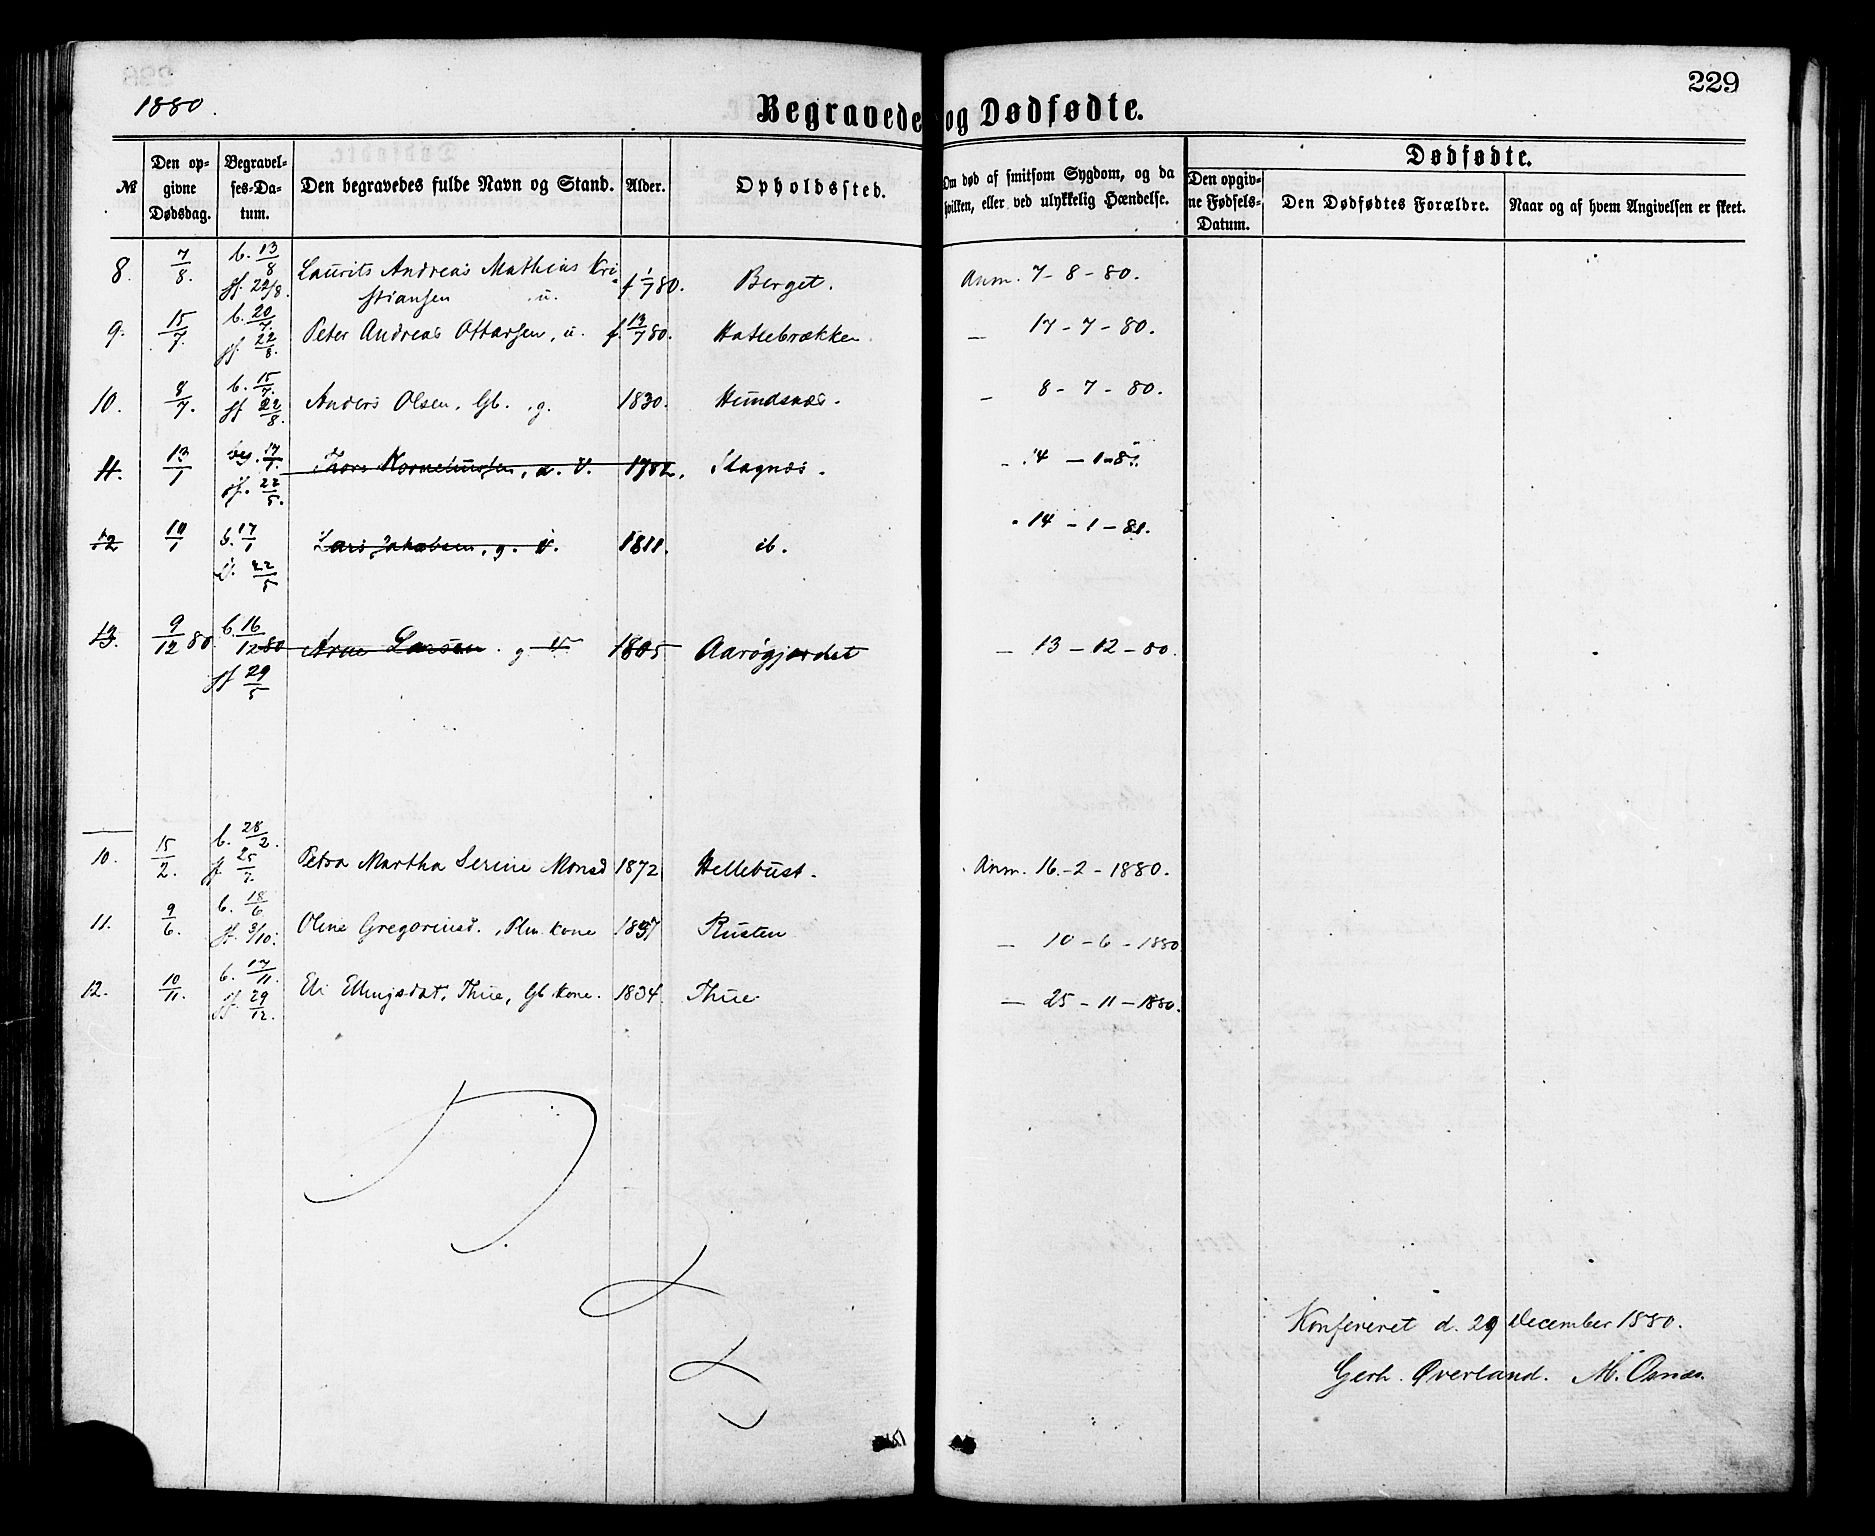 1880.
229
Begravede og Dødfødte.
№
Den opgivne Dødsdag.
Begravelses-Datum.
Den begravedes fulde Navn og Stand.
Alder.
Opholdssted.
Om død af smitsom Sygdom, og da hvilken, eller ved ulykkelig Hændelse.
Dødfødte.
Den opgivne Fødsels-Datum.
Den Dødfødtes Forældre.
Naar og af hvem Angivelsen er skeet.
8. 7/8. b. 13/8 Laurits Andreas Mathias Kri Berget. Anm. 7-8-80.
jf. 22/8. stiansen u. f 1/7 80.
9. 15/7. b. 20/7. Peter Andreas Ottarsen, u. f. 13/7 80. Hatlebrækken. — 17-7-80.
jf. 22/8.
10. 8/7. b. 15/7. Anders Olsen, Gb. g. 1830. Hundsnæs. — 8-7-80.
jf 22/8.
11. 13/1 beg. 17/1. Thore Kornelius­sen, u. V. 1782. Slagnæs.
jf. 22/5.
12 10/1 b. 17/1 Lars Jakobsen, g. V. 1811. ib. 14-1-81.
jf. 22/5
13. 9/12 80. b. 16/12 80 Arne Larsen. g V 1805 Aarøgjerdet — 13-12-80.
jf 29/5
10. 15/2. b. 28/2. Petra Martha Serine Monsd 1872 Hellebust. Anm. 16-2-1880.
jf. 25/7.
11. 9/6. b. 18/6 Oline Gregoriusd., Plm. kone 1837 Rusten — 10-6-1880
jf. 3/10.
12. 10/11. b. 17/11. Eli Ellingsdat. Thue, Gb kone. 1834. Thue — 25-11-1880.
jf. 29/12.
Konfereret d. 29 December 1880.
Gerh. Øverland. M. Osnæs.